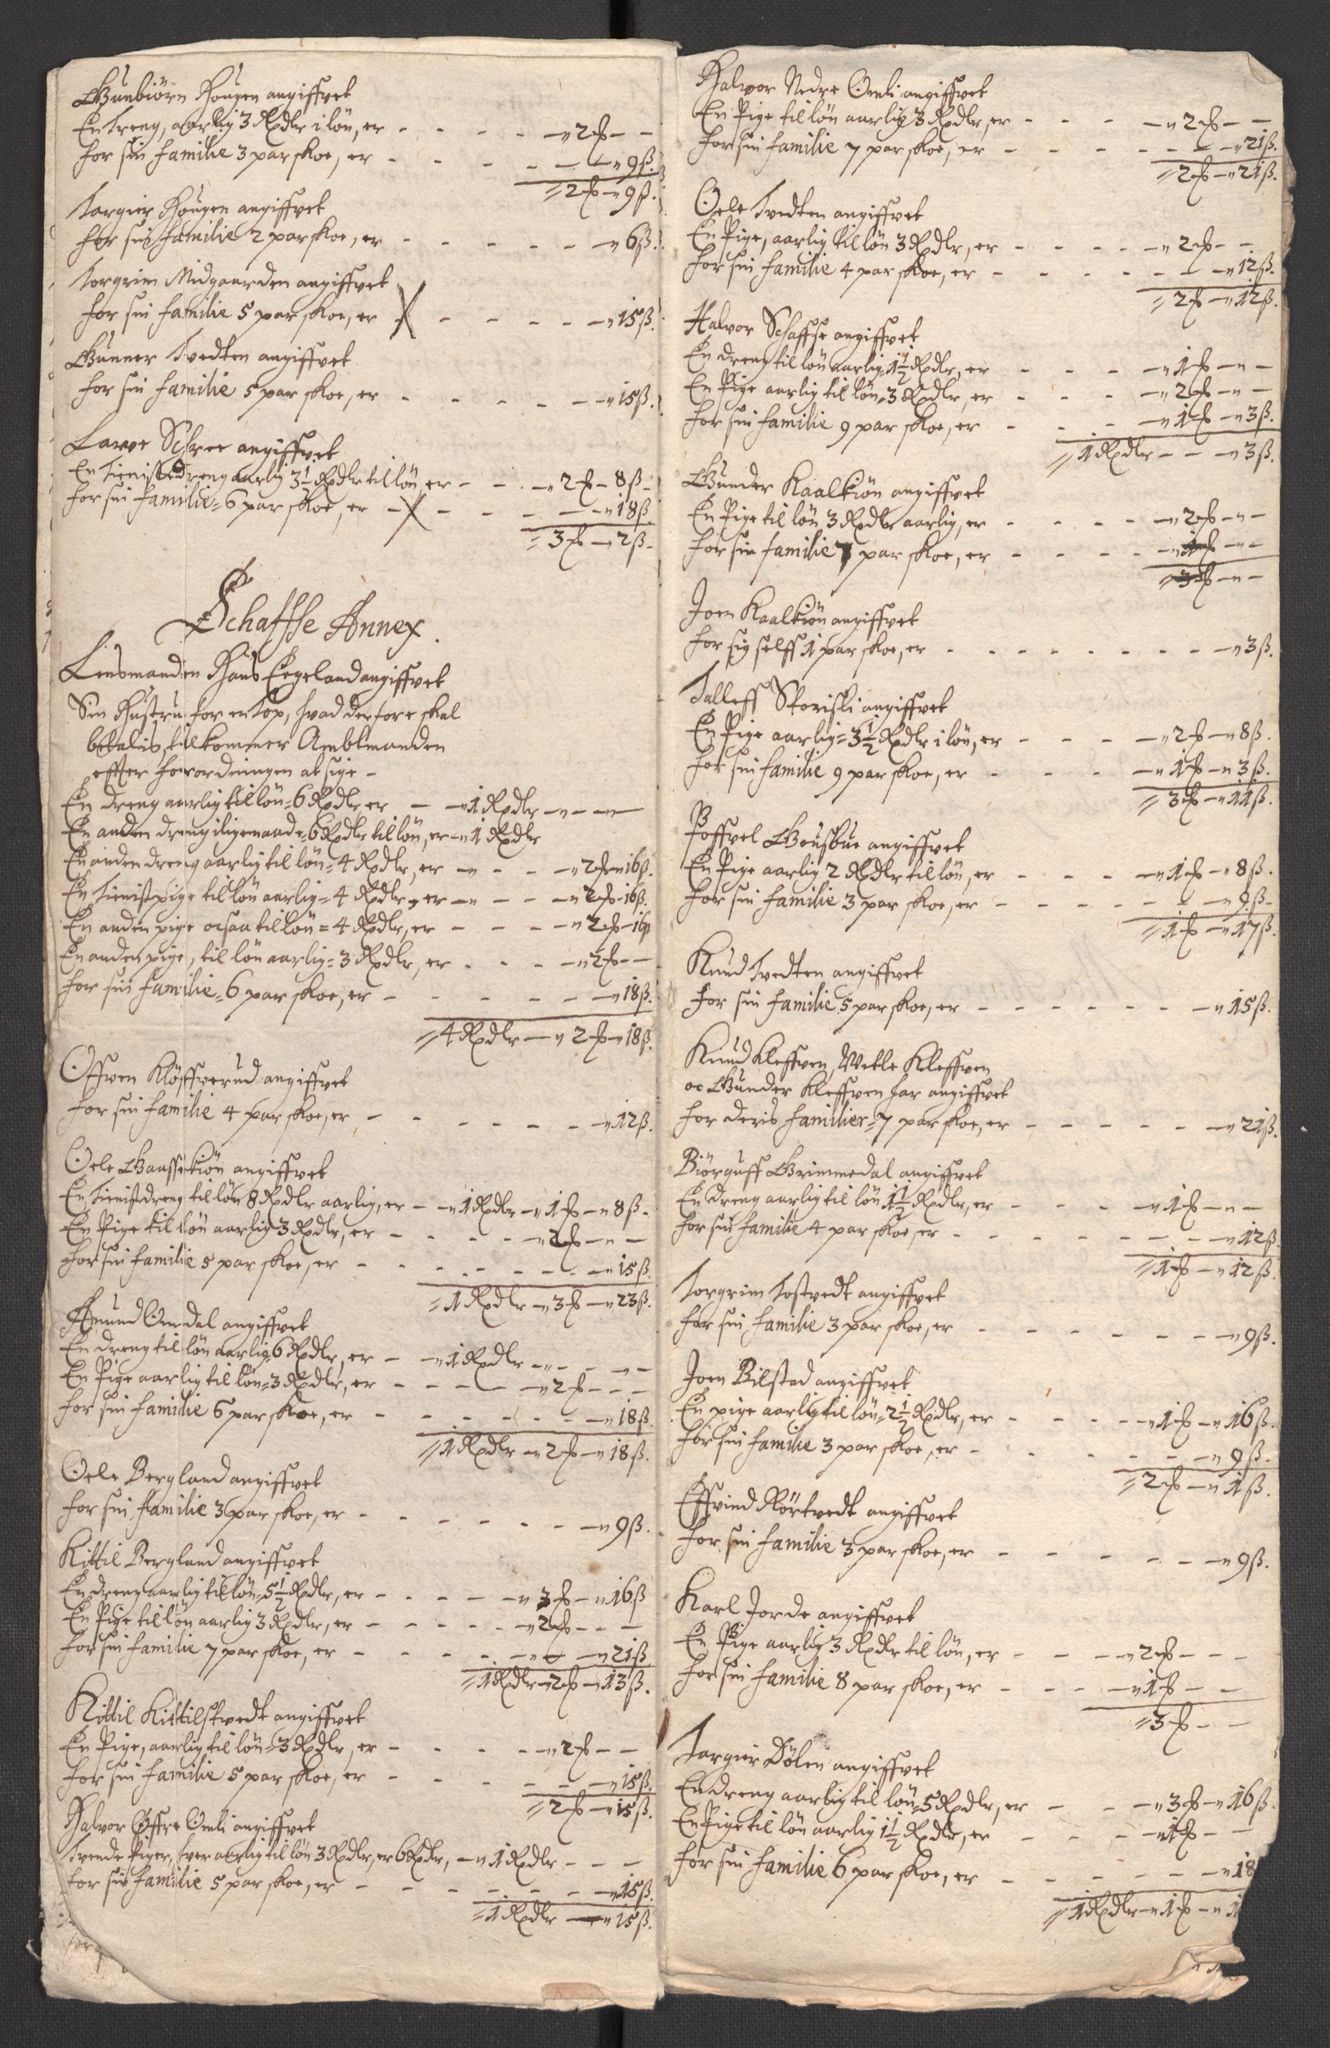 Gunbiørn Hougen angiffvet
En Dreng, aarlig 3 Rxdlr i løn, er - - - - -"- 2 ß - -
for sin familie 3 par skoe, er - - - - - - "9 ß.
= 2 ß - " 9 ß.
Torgier Hougen angiffvet
for sin familie 2 par skoe, er - - - - - - " 6 ß.
Torgrim Midgaarden angiffvet
for sin familie 5 par skoe, er X - - - - - " 15 ß.
Gunner Tvedten angiffvet
for sin familie 5 par skoe, er - - - - - - " 15 ß.
Lawe Schree angiffvet
En Tienistedreng aarlig 3 1/2 Rxdlr til løn, er - - - " 2 ß - 8 ß -
for sin familie = 6 par skoe, er - X - - - - " 18 ß.
= 3 ß - " 2 ß -
Schaffse Annex.
Lensmanden Hans Eegeland angiffvet
Sin Hustru for en Top, hvad derfore skal
betalis, tilkommer Ambtmanden
effter forordningen at sige -
En dreng aarlig til løn = 6 Rxdlr er - - " 1 Rxdlr - " - " -
En anden dreng i lige maade = 6 Rxdlr til løn, er - " 1 Rxdlr
En anden dreng aarlig til løn = 4 Rxdlr, er - " - - - " 2 ß - 16 ß.
En Tienistpige til løn aarlig = 4 Rxdlr, er - " - - - " 2 ß - 16 ß.
En anden pige ocsaa til løn = 4 Rxdlr, er - - - - " 2 ß - 16 ß
En anden pige, til løn aarlig = 3 Rxdlr, er - - - - " 2 ß - -
for sin familie = 6 par skoe, er - - - - - - " 18 ß.
= 4 Rxdlr - " 2 ß - " 18 ß.
Offven Kløffverud angiffvet
for sin familie 4 par skoe, er - - - - - - " 12 ß.
Oele Gaassekiøn angiffvet
En Tienistdreng til løn 8 Rxdlr aarlig, er - - " 1 Rxdlr - " 1 ß - " 8 ß -
En Pige til løn aarlig 3 Rxdlr, er - - - - - " 2 ß - " -
for sin familie 5 par skoe, er - - - - - - " 15 ß.
= 1 Rxdlr - " 3 ß - " 23 ß.
Amund Omdal angiffvet
En dreng til løn aarlig = 6 Rxdlr, er - - " 1 Rxdlr - " - - " -
En Pige aarlig til løn = 3 Rxdlr, er - - - - - " 2 ß - - -
for sin familie 6 par skoe, er - - - - - - " 18 ß.
= 1 Rxdlr - " 2 ß - " 18 ß.
Oele Bergland angiffvet
for sin familie 3 par skoe, er - - - - - - " 9 ß.
Kittil Bergland angiffvet
En dreng aarlig til løn = 5 1/2 Rxdlr, er - - - - - " 3 ß - " 16 ß
En Pige til løn aarlig 3 Rxdlr, er - - - - - " 2 ß - - -
for sin familie 7 par skoe, er - - - - - - " 21 ß
= 1 Rxdlr - 2 ß - " 13 ß.
Kittil Kittilstvedt angiffvet
En Pige, aarlig til løn = 3 Rxdlr, er - - - - - " 2 ß - -
for sin familie 5 par skoe, er - - - - - - " 15 ß.
= 2 ß - " 15 ß.
Halvor Øffre Omli angiffvet
Tvende Piger, hver aarlig til løn 3 Rxdlr, er 6 Rxdlr, - " 1 Rxdlr - - -
for sin familie 5 par skoe, er - - - - - - " 15 ß.
= 1 Rxdlr - " 15 ß.
Halvor Nedre Omli angiffvet
En Pige til løn aarlig 3 Rxdlr, er - - - - " 2 ß - -
for sin familie 7 par skoe, er - - - - - - " 21 ß.
= 2 ß - " 21 ß.
Oele Tvedten angiffvet
En Pige, aarlig til løn 3 Rxdlr, er - - - - - " 2 ß - -
for sin familie 4 par skoe, er - - - - - - " 12 ß.
= 2 ß - " 12 ß.
Halvor Schaffse angiffvet
En dreng til løn aarlig = 1 1/2 Rxdlr, er - - - - " 1 ß - " -
En Pige aarlig til løn = 3 Rxdlr, er - - - - " 2 ß - " -
for sin familie 9 par skoe, er - - - - " 1 ß - " 3 ß.
= 1 Rxdlr - - - " 3 ß.
Gunder Kaalkiøn angiffvet
En Pige til løn 3 Rxdlr aarlig, er - - - - - " 2 ß - " -
for sin familie 7 par skoe, er - - - - - " 1 ß - " -
= 3 ß - " -
Joen Kaalkiøn angiffvet
for sig selff 1 par skoe, er - - - - - - - - " 3 ß.
Talleff Skoriski angiffvet
En Pige aarlig = 3 1/2 Rxdlr i løn, er - - - - " 2 ß - " 8 ß.
for sin familie 9 par skoe, er - - - - " 1 ß - " 3 ß.
= 3 ß - " 11 ß.
Poffvel Gousbue angiffvet
En Pige aarlig 2 Rxdlr til løn, er - - - - " 1 ß - " 8 ß.
for sin familie 3 par skoe, er - - - - - - " 9 ß -
= 1 ß - " 17 ß.
Knud Tvedten angiffvet
for sin familie 5 par skoe, er - - - - - - - " 15 ß.
Knud Kleffven, Wetle Kleffven
oc Gunder Kleffven har angiffvet
for deris familier = 7 par skoe, er - - - - - - " 21 ß.
Biørguff Grimmedal angiffvet
En dreng aarlig til løn 1 1/2 Rxdlr, er - - - - - " 1 ß - " -
for sin familie 4 par skoe, er - - - - - - " 12 ß.
= 1 ß - " 12 ß.
Torgrim Tostvedt angiffvet
for sin familie 3 par skoe, er - - - - - - - " 9 ß.
Joen Bilstad angiffvet
En pige aarlig til løn = 2 1/2 Rxdlr, er - - - - - " 1 ß - " 16 ß.
for sin familie 3 par skoe, er - - - - - - " 9 ß -
= 2 ß - " 1 ß.
Effvind Rørtvedt angiffvet
for sin familie 3 par skoe, er - - - - - - " 9 ß.
Karl Jorde angiffvet
En Pige aarlig 3 Rxdlr til løn, er - - - - " 2 ß - - -
for sin familie 8 par skoe, er - - - - " 1 ß - -
= 3 ß - -
Torgier Dølen angiffvet
En dreng aarlig til løn = 5 Rxdlr, er - - - " 3 ß - " 16 ß.
En Pige til løn aarlig 1 1/2 Rxdlr, er - - - - " 1 ß - -
for sin familie 6 par skoe, er - - - - - - " 18
= 1 Rxdlr - " 1 ß - " 1